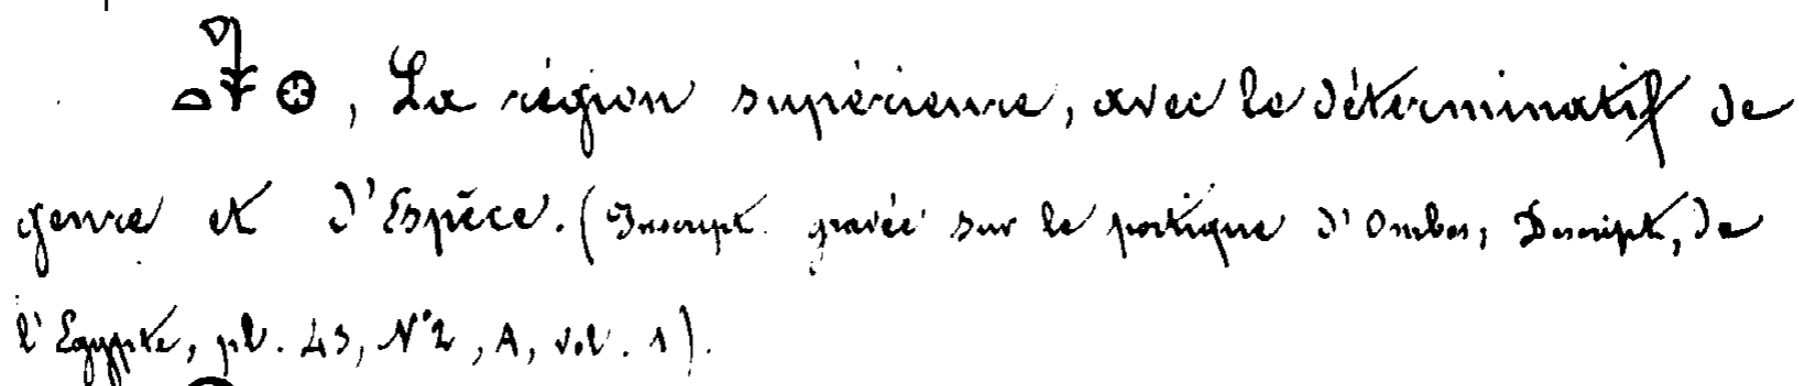 , La région supérieure, avec le déterminatif de
genre et d'Espèce. (Inscript. gravée sur le portique d'Ombos, Descript, de
l'Egypte, pl. 43, N°2, A, vol. 1).